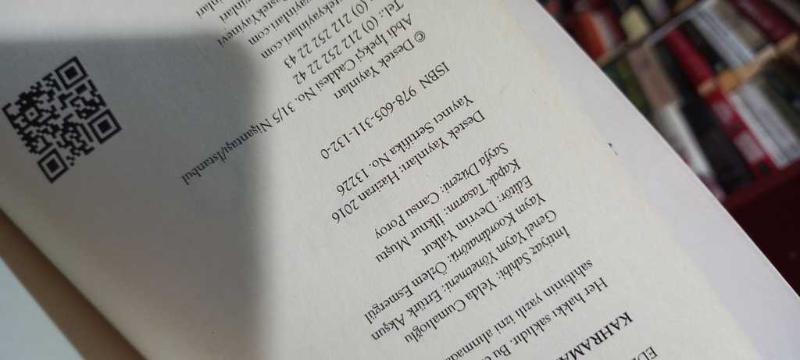 KAHRAMA
Her hakkı saklıdır. Bu
sahibinin yazılı izni alınmada
İmtiyaz Sahibi: Yelda Cumalıoğlu
Genel Yayın Yönetmeni: Ertürk Akşun
Yayın Koordinatörü: Özlem Esmergül
Editör: Devrim Yalkut
Kapak Tasarım: İlknur Muştu
Sayfa Düzeni: Cansu Poroy
Destek Yayınları: Haziran 2016
Yayıncı Sertifika No. 13226
ISBN 978-605-311-132-0
© Destek Yayınları
Abdi İpekçi Caddesi No. 31/5 Nişantaşı/İstanbul
Tel.: (0) 212 252 22 42
(0) 212 252 22 43
ekyayinlari.com
stekYayinevi
inlari